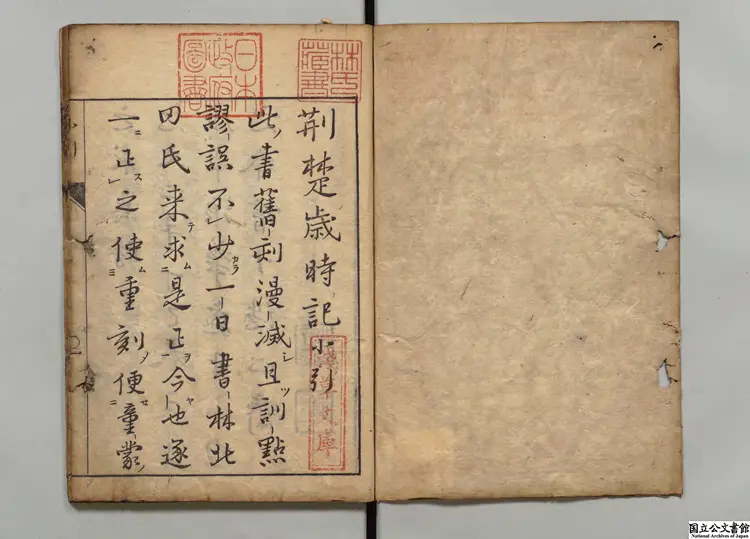 林氏藏書
日本政府圖書
荊楚歳時記小引
淺草文庫
此書舊刻漫滅且訓點
謬誤不少一日書林北
田氏来求是正今也逐
一正之使重刻便童蒙
国立公文書館
National Archives of Japan